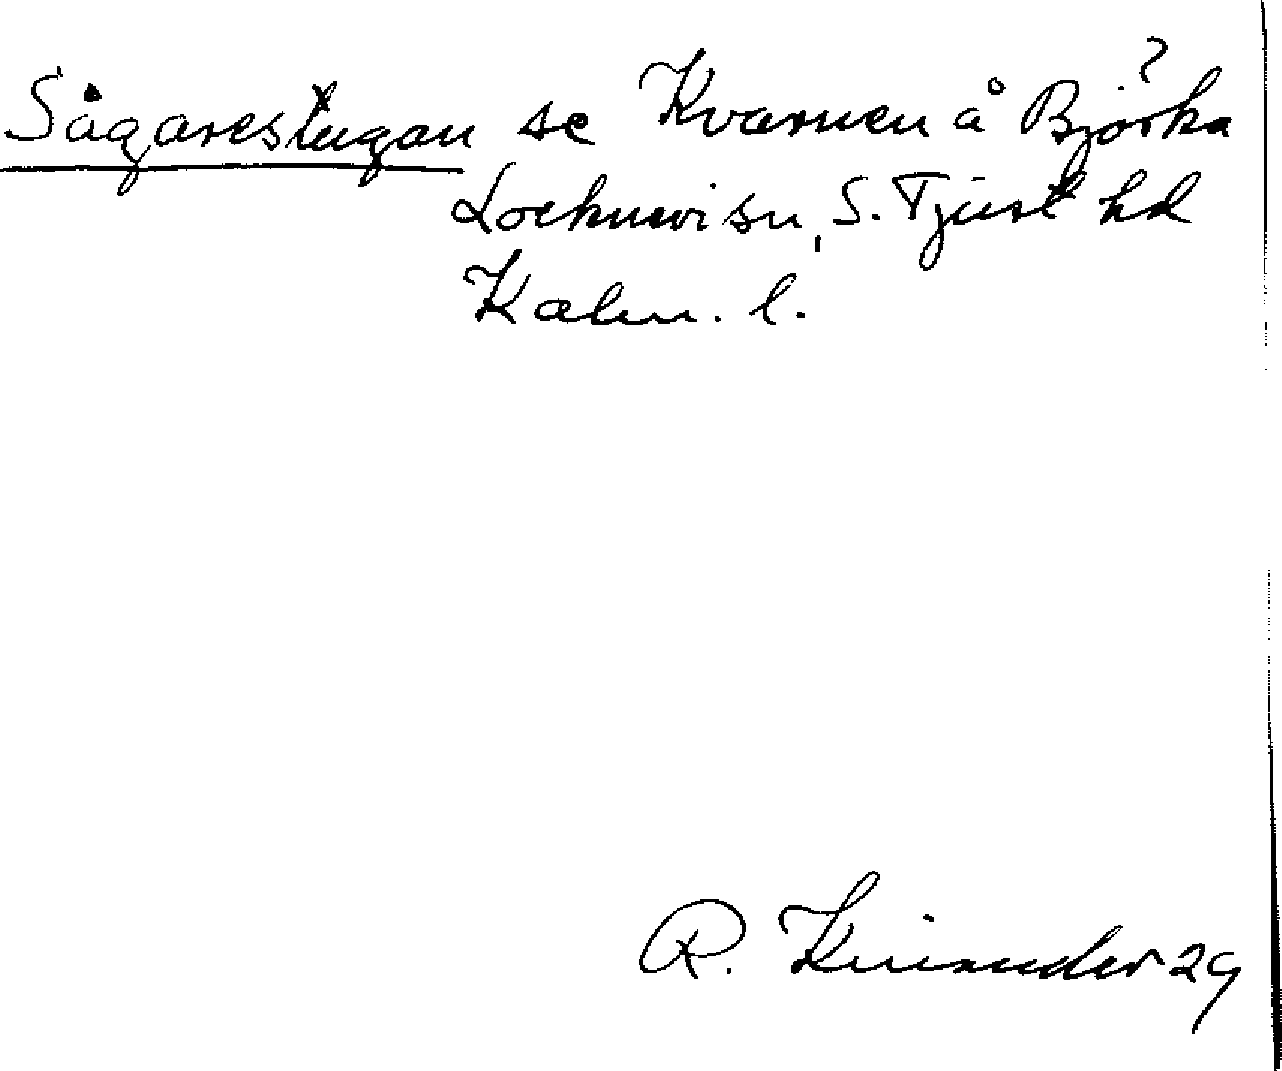 Sågarestugan se Kvarnen å Björka ?
Locknevi sn, S. Tjust hd
Kalm. l.
R. 29